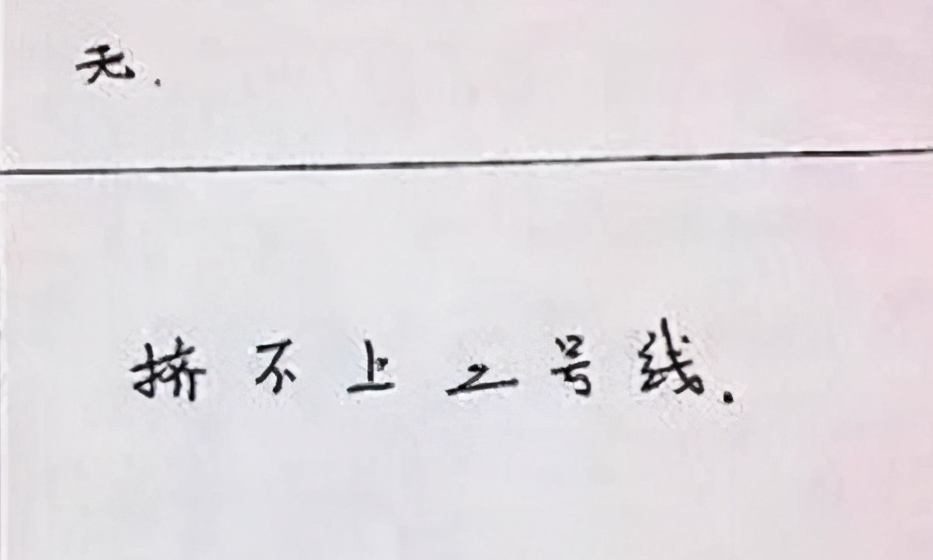 无.
挤不上二号线.